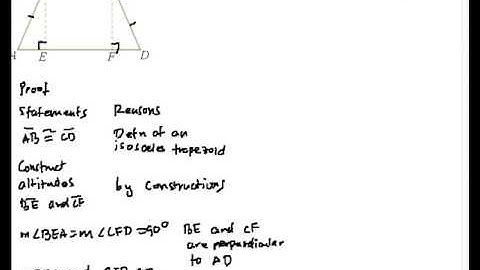 A E F D
Proof
Statements Reasons
AB ≅ CD Defn of an
isosceles trapezoid
Construct
altitudes by constructions
BE and CF
m∠BEA = m∠CFD = 90° BE and CF
are perpendicular
to AD